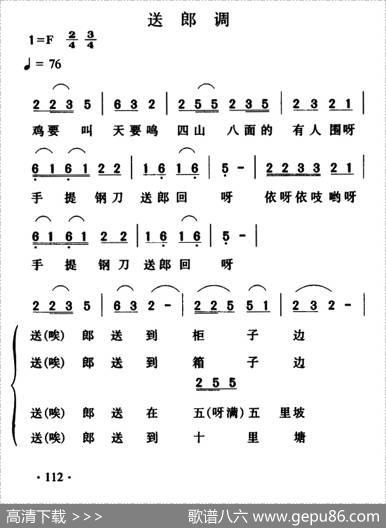 送郎调
1=F 2/4 3/4
♩= 76
2 2 3 5 | 6 3 2 | 2 5 5 2 2 3 | 2 3 2 1 |
鸡要 叫 天要鸣 四山 八面的 有人围呀
6 1 6 1 2 2 | 1 6 1 6 | 5 - | 2 2 3 3 2 1 |
手 提 钢刀 送郎回 呀 依呀依吱哟呀
6 1 6 1 2 2 | 1 6 1 6 | 5 - |
手 提 钢刀 送郎回 呀
2 2 3 5 | 6 3 2 - | 2 2 5 5 1 | 2 3 2 - |
送(唉) 郎 送 到 柜 子 边
送(唉) 郎 送 到 箱 子 边
2 5 5
送(唉) 郎 送 在 五(呀满)五 里坡
送(唉) 郎 送 到 十 里 塘
· 112 ·
高清下载 >>> 歌谱八六 www.gepu86.com